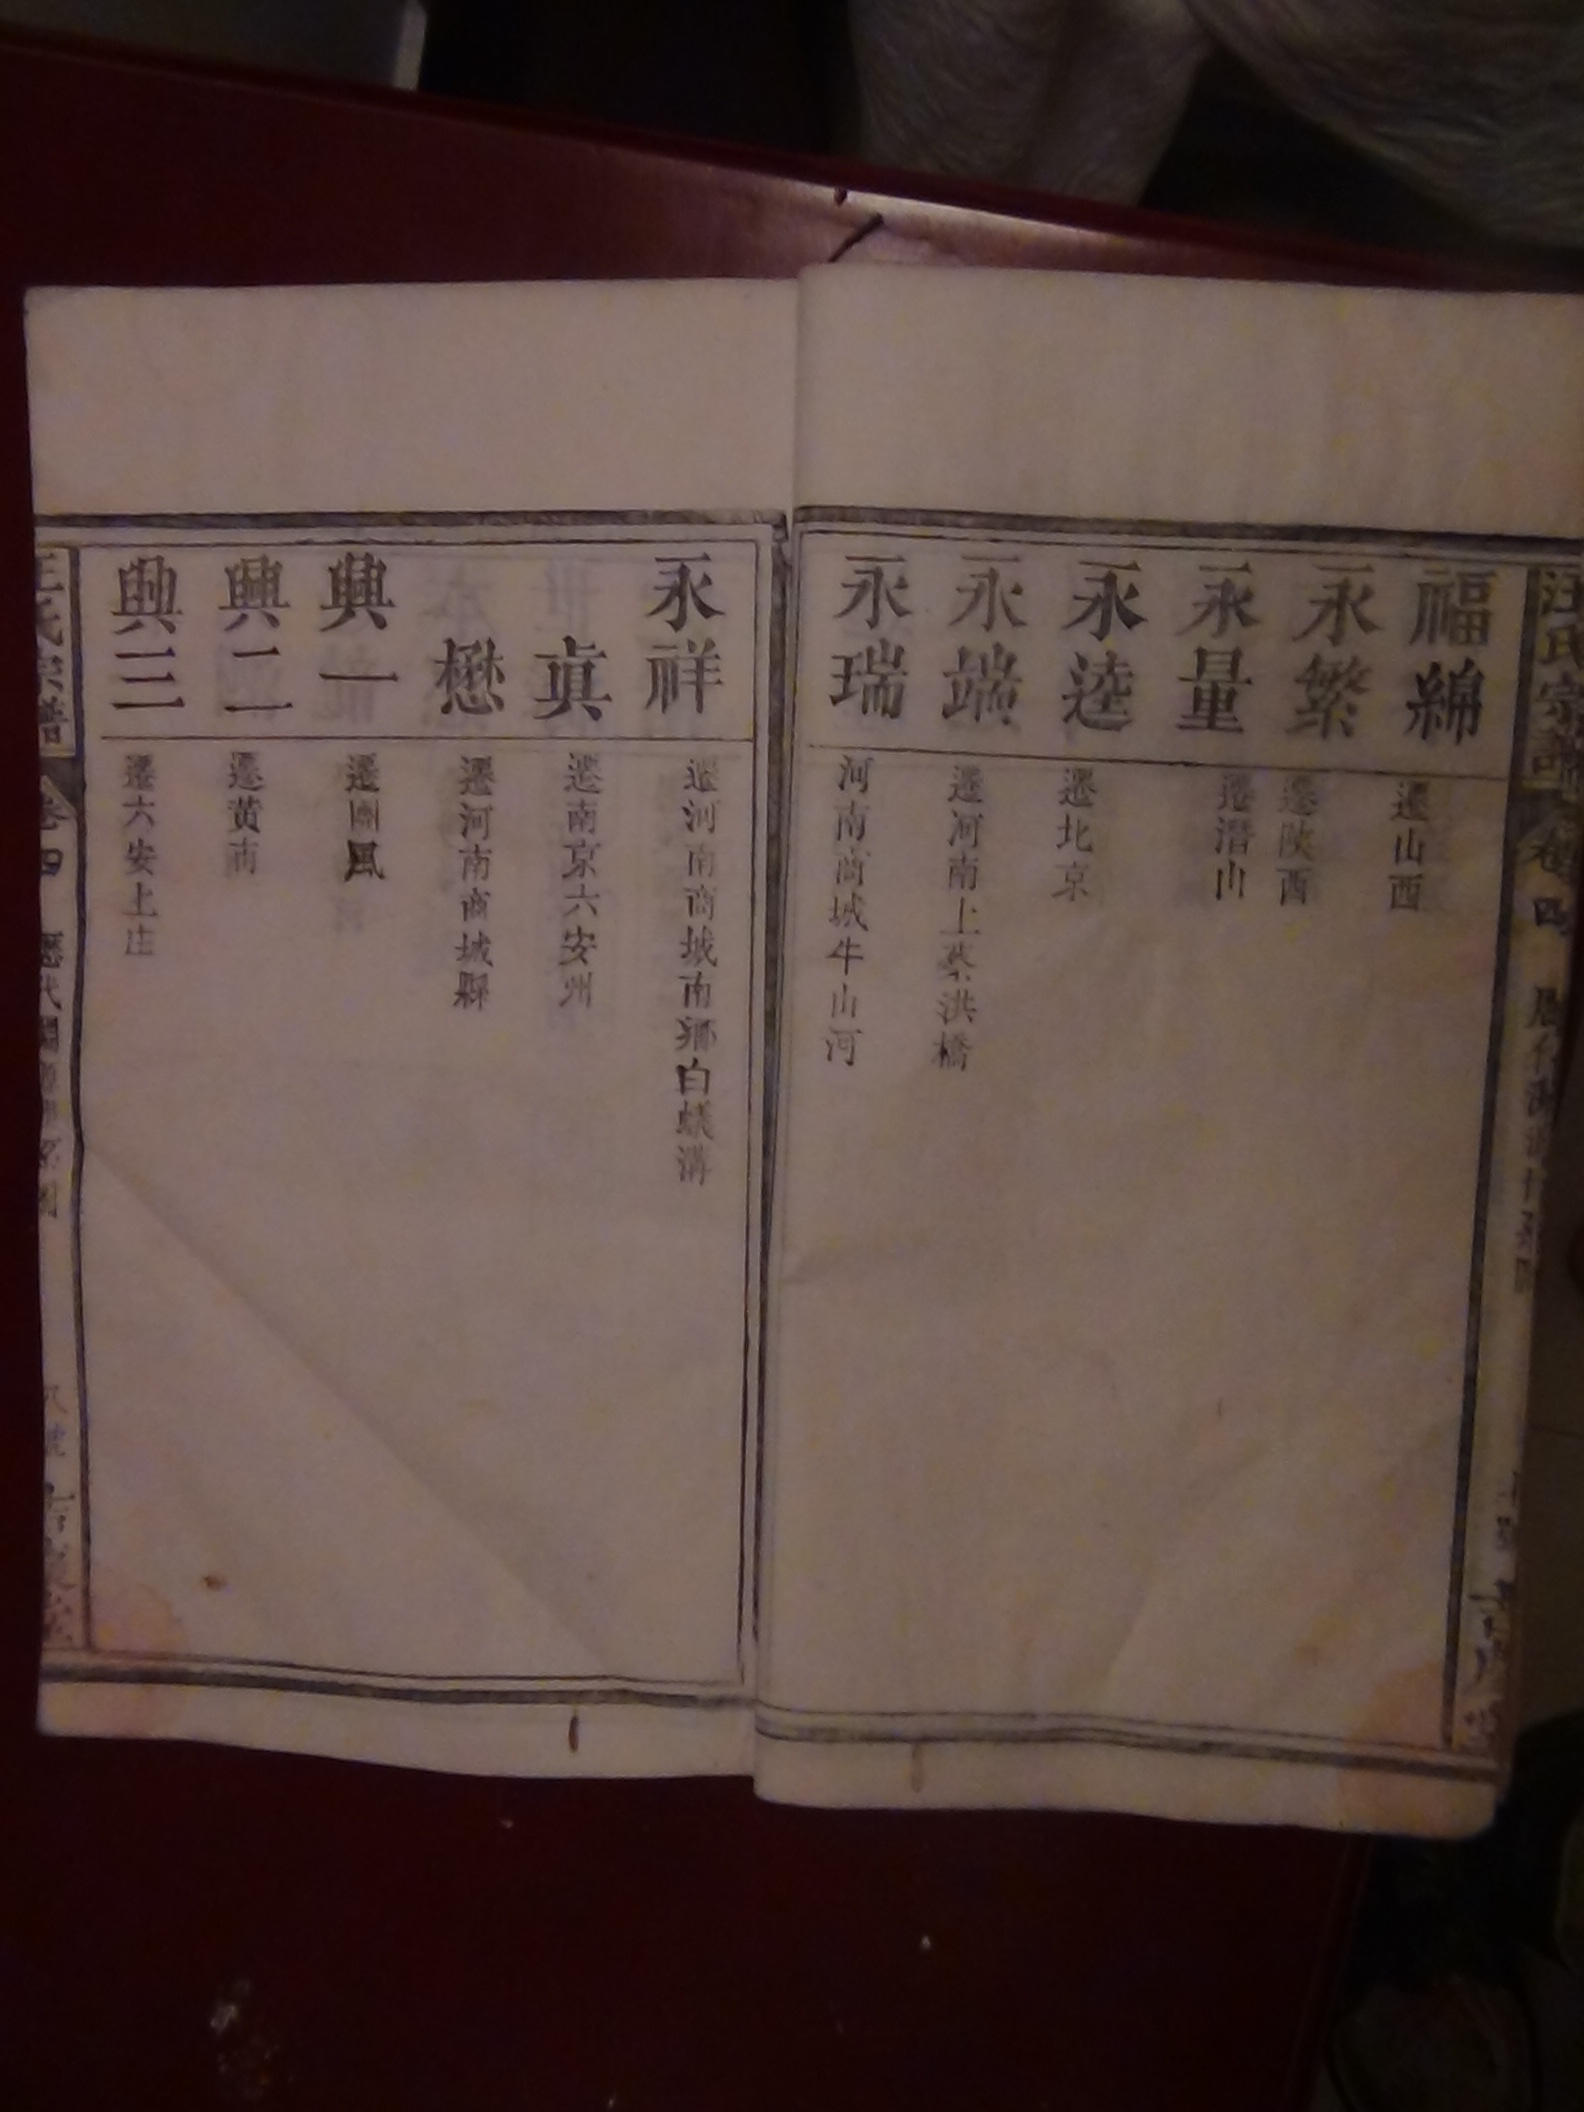 汪氏宗譜 卷四
福綿 遷山西
永繁 遷陜西
永量 遷潛山
永逵 遷北京
永端 遷河南上蔡洪橋
永瑞 河南商城牛山河
永祥 遷河南商城南鄉白蟻溝
真 遷南京六安州
懋 遷河南商城縣
興一 遷團風
興二 遷黄南
興三 遷六安上庄
汪氏宗譜 卷四 歷代